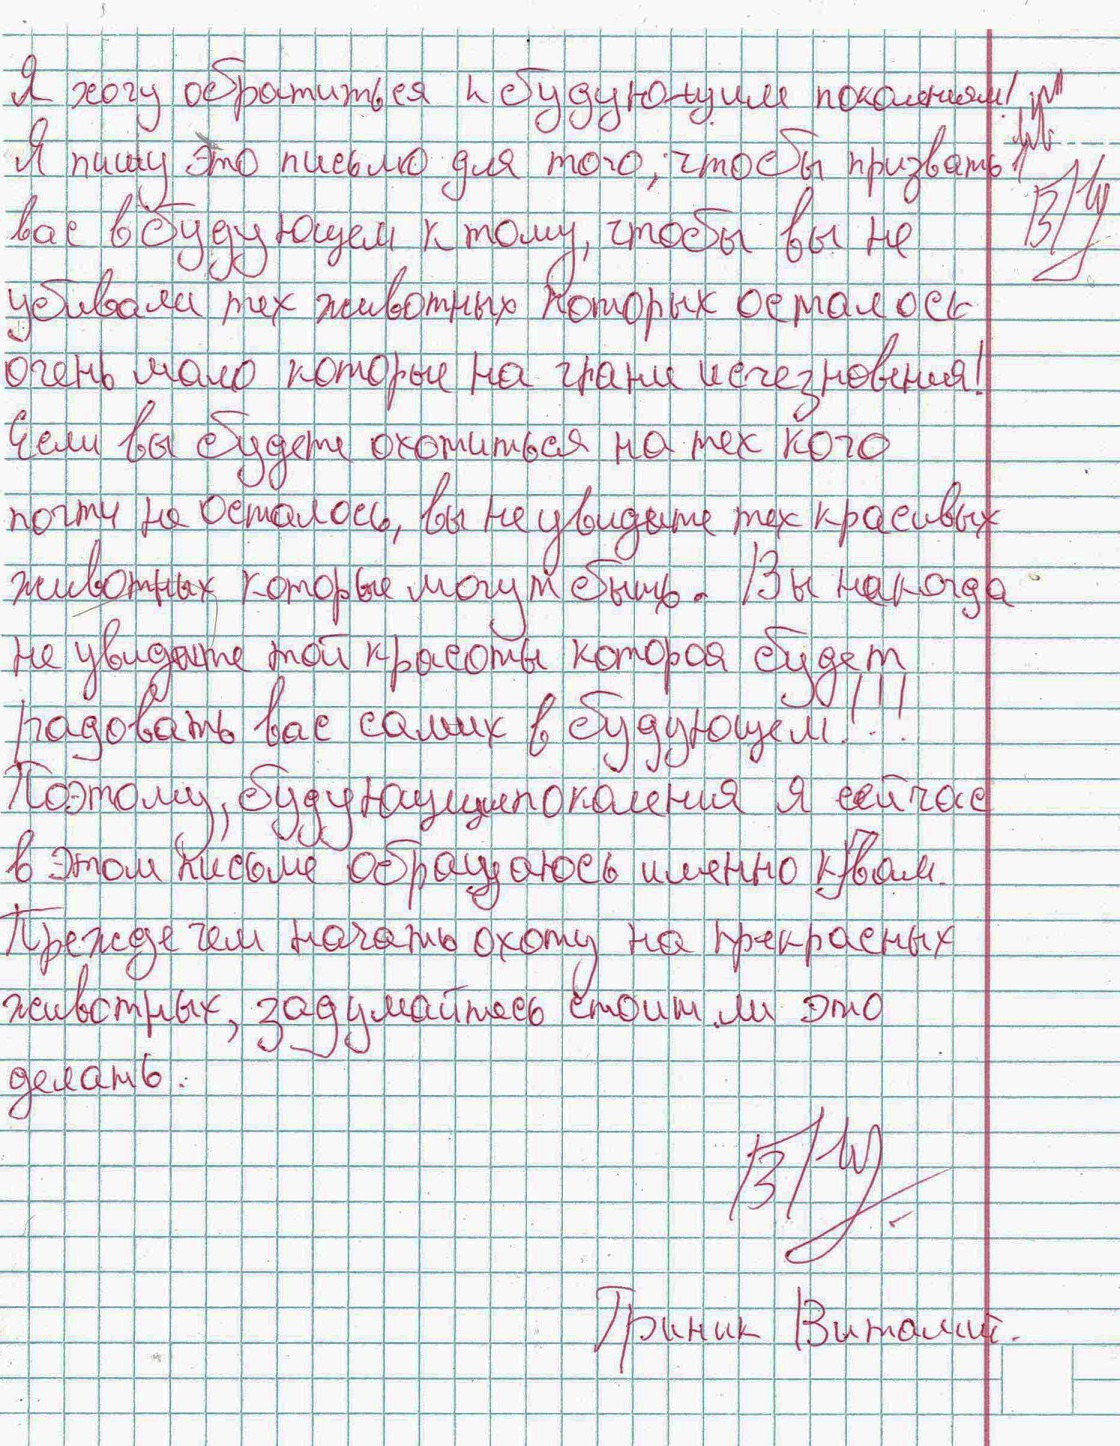 Я хочу обратиться к будующим поколениям!
Я пишу это письмо для того, чтобы призвать
вас в будующем к тому, чтобы вы не
убивали тех животных которых осталось
очень мало которые на грани исчезновения!
Если вы будете охотиться на тех кого
почти не осталось, вы не увидите тех красивых
животных которые могут быть. Вы никогда
не увидите той красоты которая будет
радовать вас самих в будующем!!!
Поэтому, будующие поколения я сейчас
в этом письме обращаюсь именно к вам.
Прежде чем начать охоту на прекрасных
животных, задумайтесь стоит ли это
делать.
Триник Виталий.